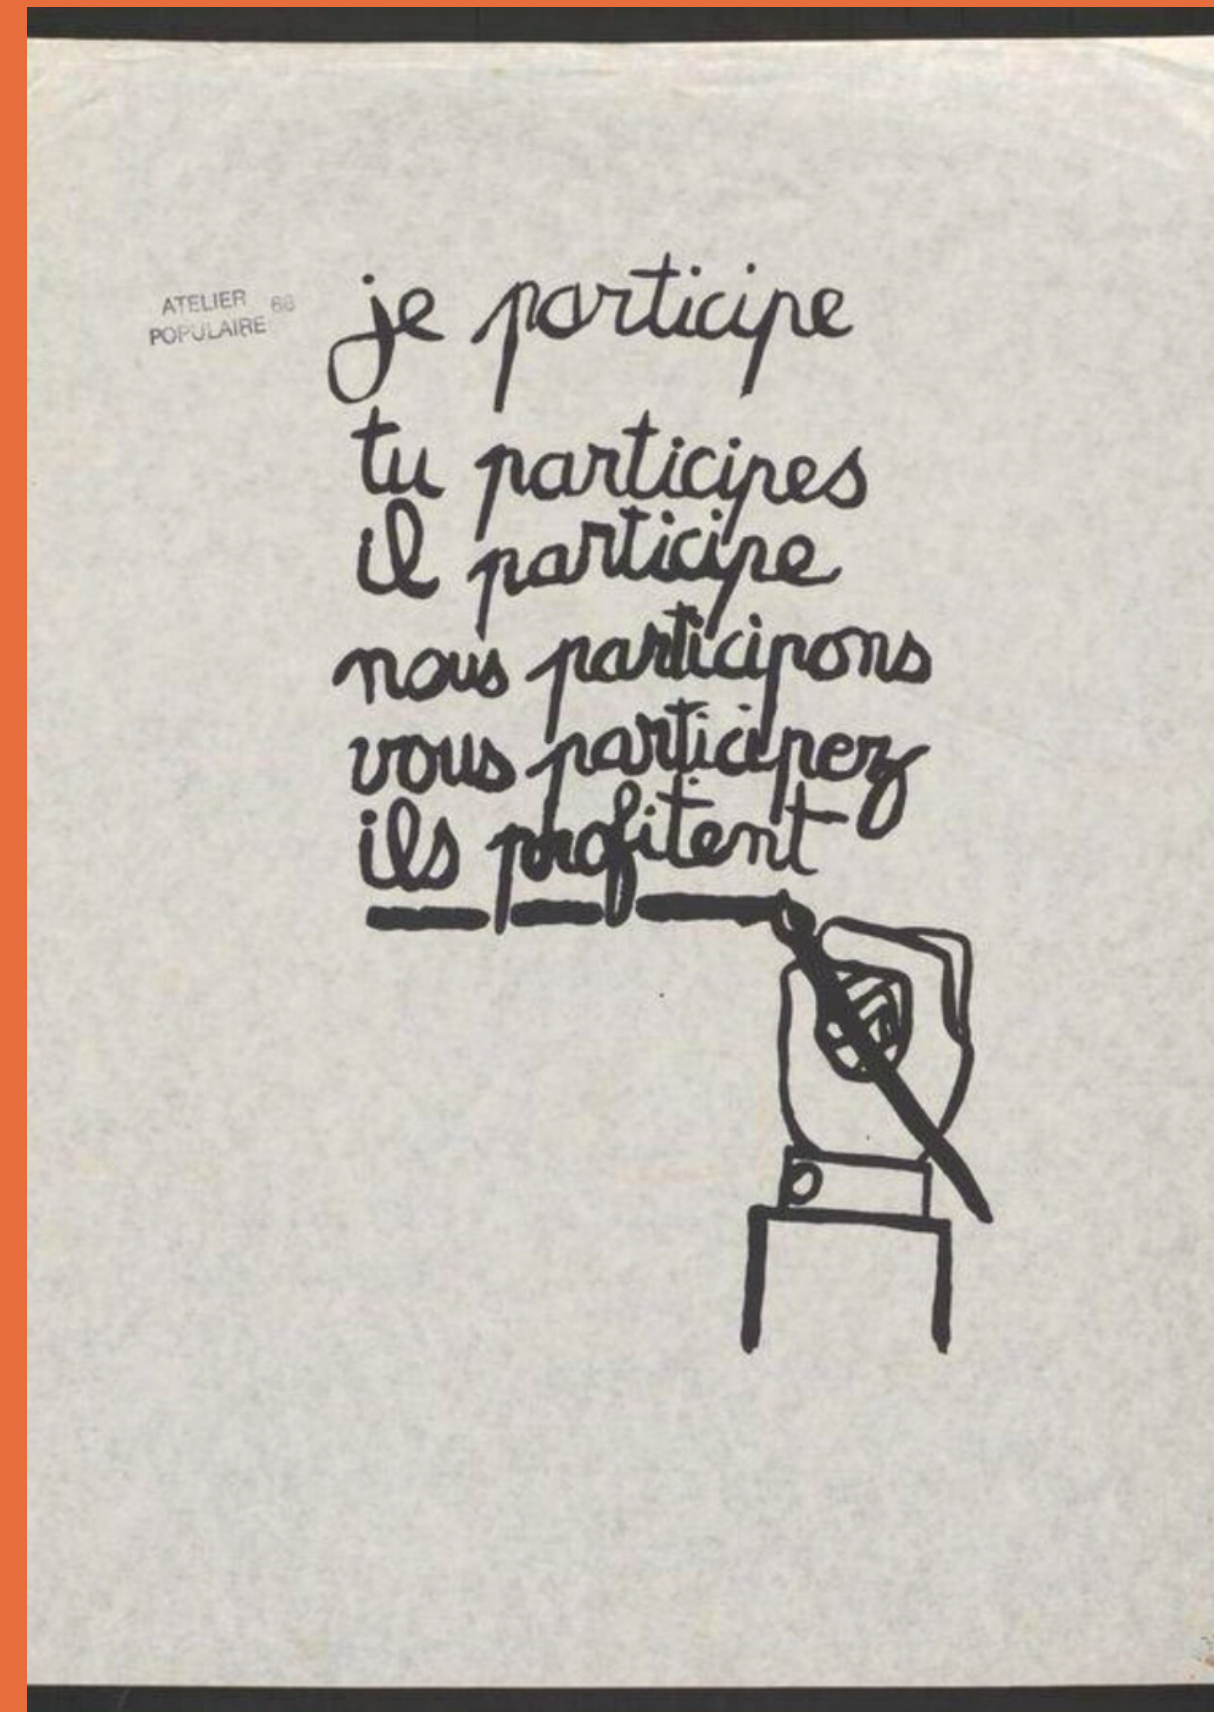 ATELIER 68
POPULAIRE
je participe
tu participes
il participe
nous participons
vous participez
ils profitent